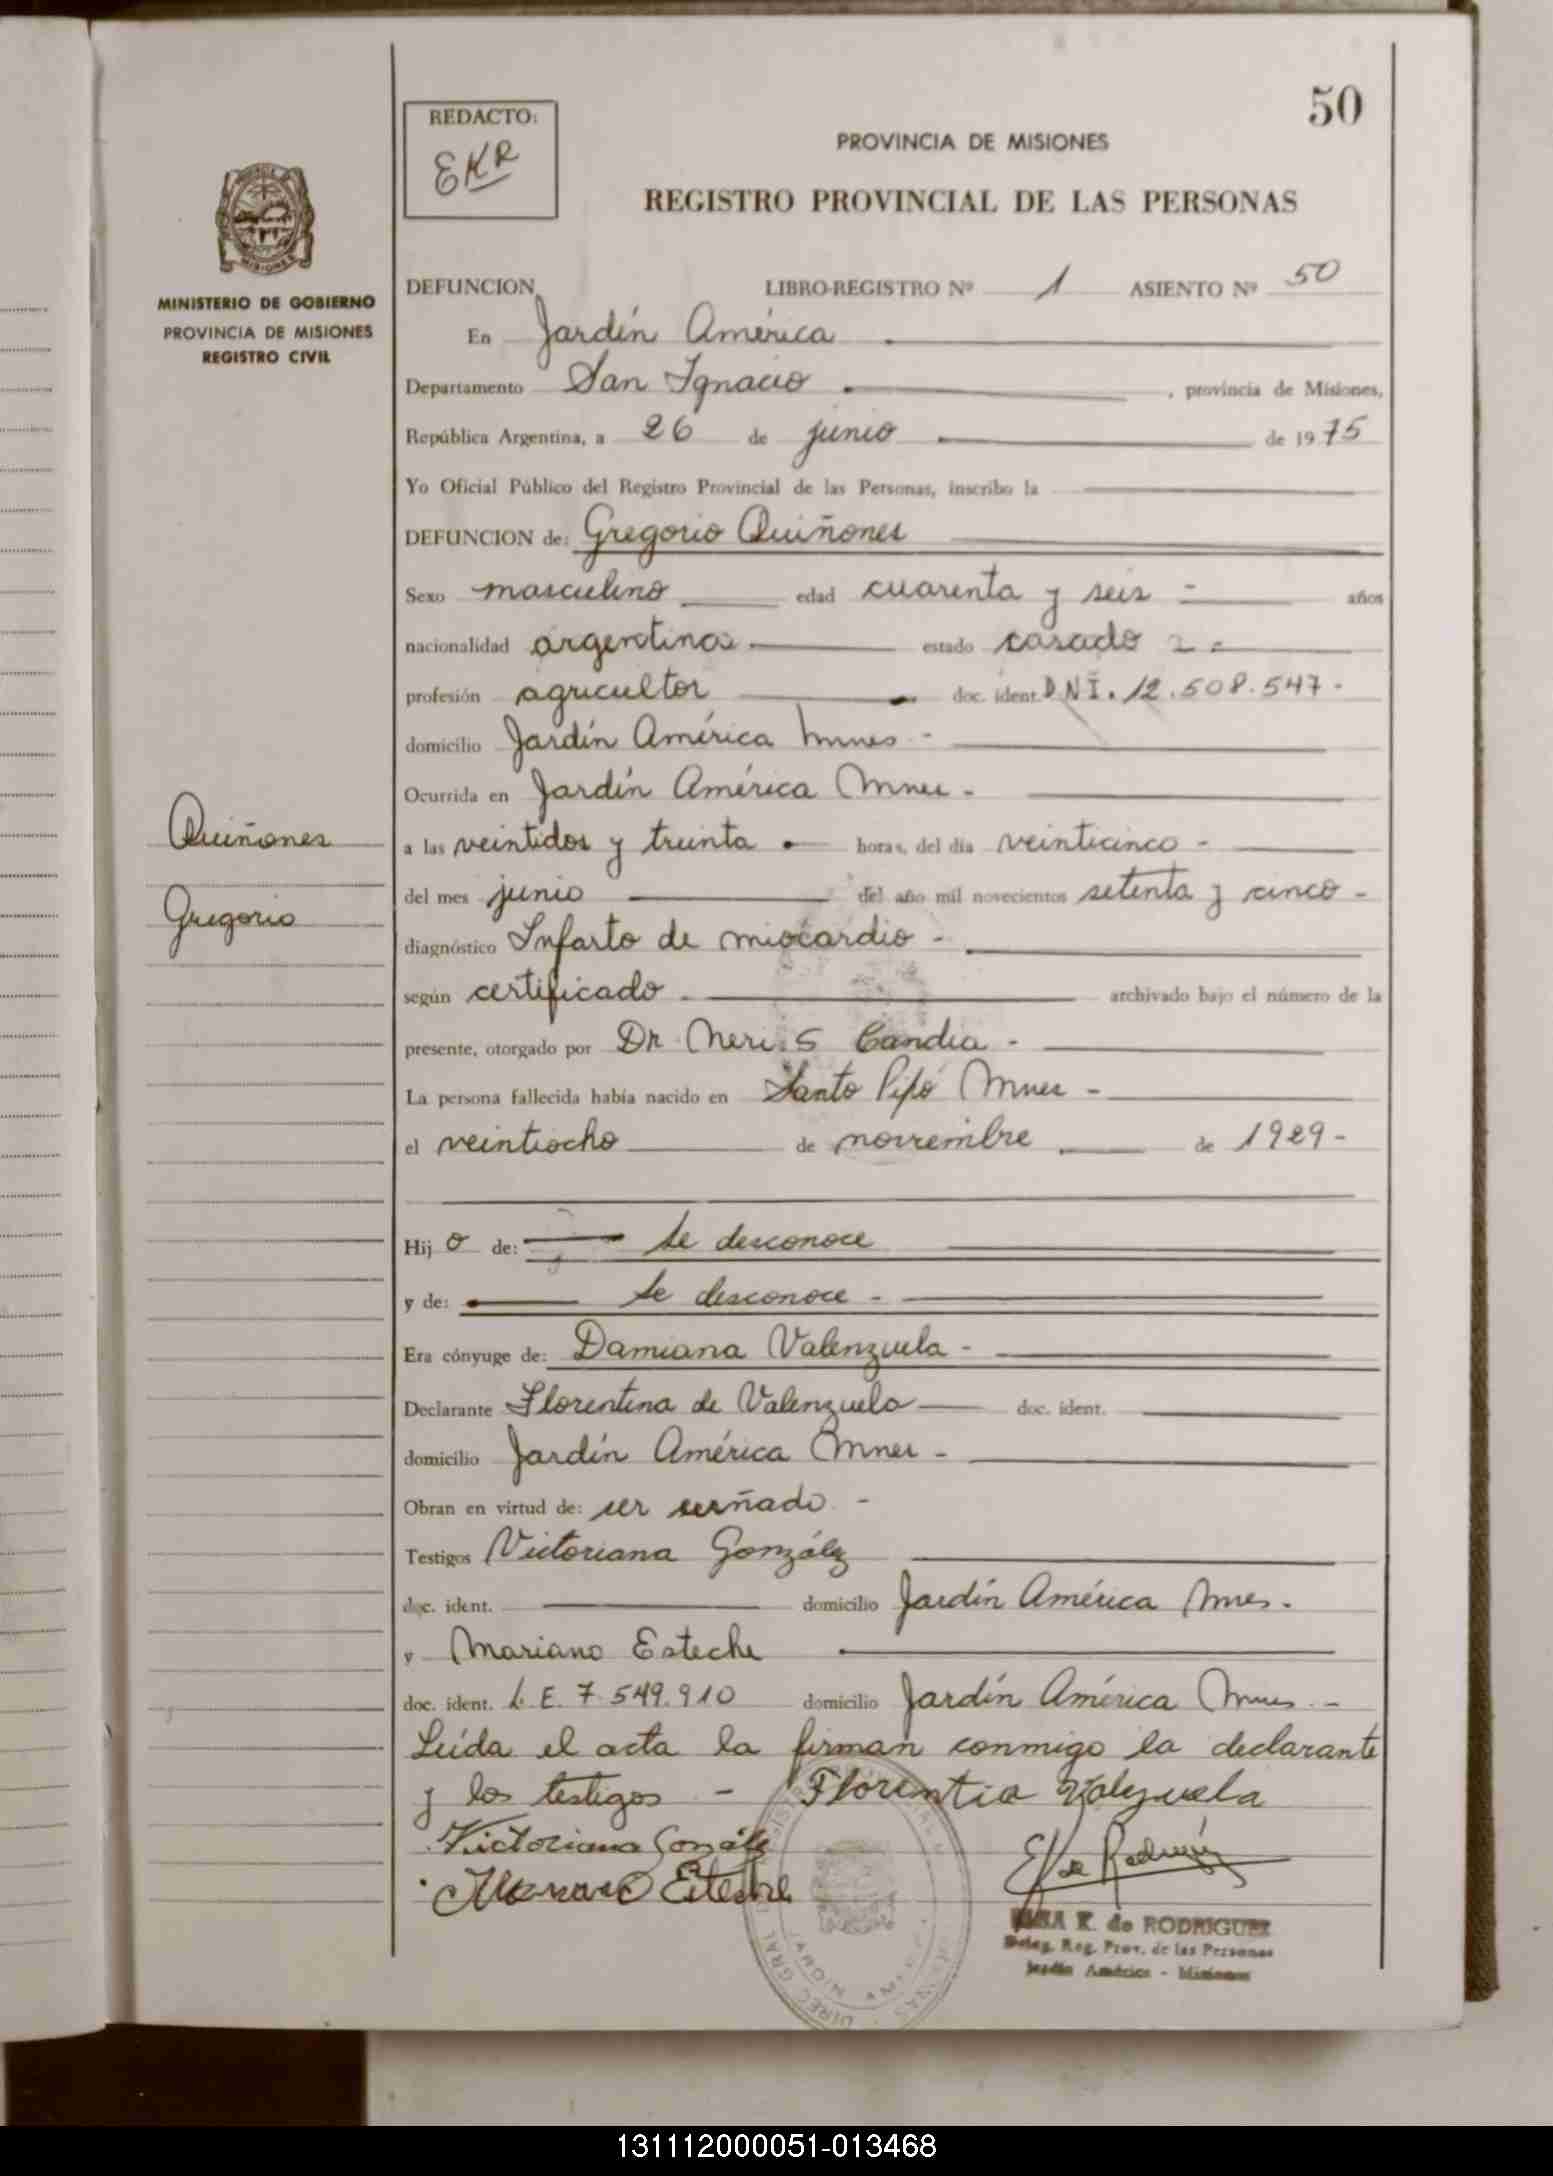 50
REDACTO:
EKR
PROVINCIA DE MISIONES
REGISTRO PROVINCIAL DE LAS PERSONAS
MISIONES
MINISTERIO DE GOBIERNO
PROVINCIA DE MISIONES
REGISTRO CIVIL
DEFUNCION LIBRO-REGISTRO Nº 1 ASIENTO Nº 50
En Jardín América
Departamento San Ignacio , provincia de Misiones,
República Argentina, a 26 de junio de 1975
Yo Oficial Público del Registro Provincial de las Personas, inscribo la
DEFUNCION de: Gregorio Quiñones
Sexo masculino edad cuarenta y seis - años
nacionalidad argentina estado casado 2 -
profesión agricultor doc. ident. D.N.I. 12.508.547-
domicilio Jardín América Mnes -
Ocurrida en Jardín América Mnes -
Quiñones
a las veintidos y treinta horas, del día veinticinco -
del mes junio del año mil novecientos setenta y cinco -
Gregorio
diagnóstico Infarto de miocardio -
según certificado archivado bajo el número de la
presente, otorgado por Dr Neri S Candia -
La persona fallecida había nacido en Santo Pipó Mnes -
el veintiocho de noviembre de 1929-
Hijo de: se desconoce
y de: se desconoce -
Era cónyuge de: Damiana Valenzuela -
Declarante Florentina de Valenzuela doc. ident.
domicilio Jardín América Mnes -
Obran en virtud de: ser cuñado -
Testigos Victoriana González
doc. ident. domicilio Jardín América Mnes.
y Mariano Esteche
doc. ident. L.E. 7.549.910 domicilio Jardín América Mnes -
Leída el acta la firman conmigo la declarante
y los testigos - Florentia Valezuela
Victoriana Gonzále
Mariano Esteche
E K de Rodriguez
ELSA K. de RODRIGUEZ
Deleg. Reg. Prov. de las Personas
Jardín América - Misiones
131112000051-013468